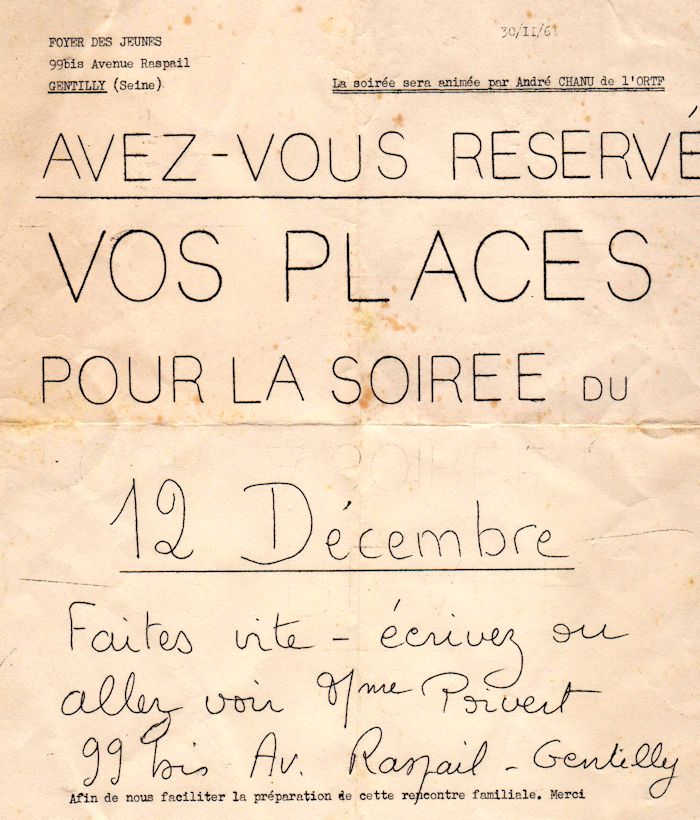 30/II/61
FOYER DES JEUNES
99bis Avenue Raspail
GENTILLY (Seine)
La soirée sera animée par André CHANU de l'ORTF
AVEZ-VOUS RESERVÉ
VOS PLACES
POUR LA SOIREE DU
12 Décembre
Faites vite - écrivez ou
allez voir Mme Poivert
99 bis Av. Raspail - Gentilly
Afin de nous faciliter la préparation de cette rencontre familiale. Merci